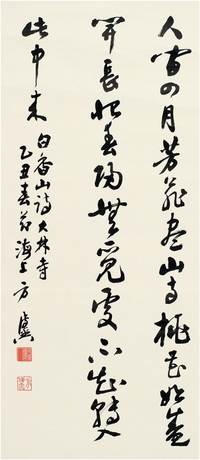 人間四月芳菲盡山寺桃花始盛
開長恨春歸無覓處不知轉入
此中來
白香山詩大林寺
乙丑春 海上方